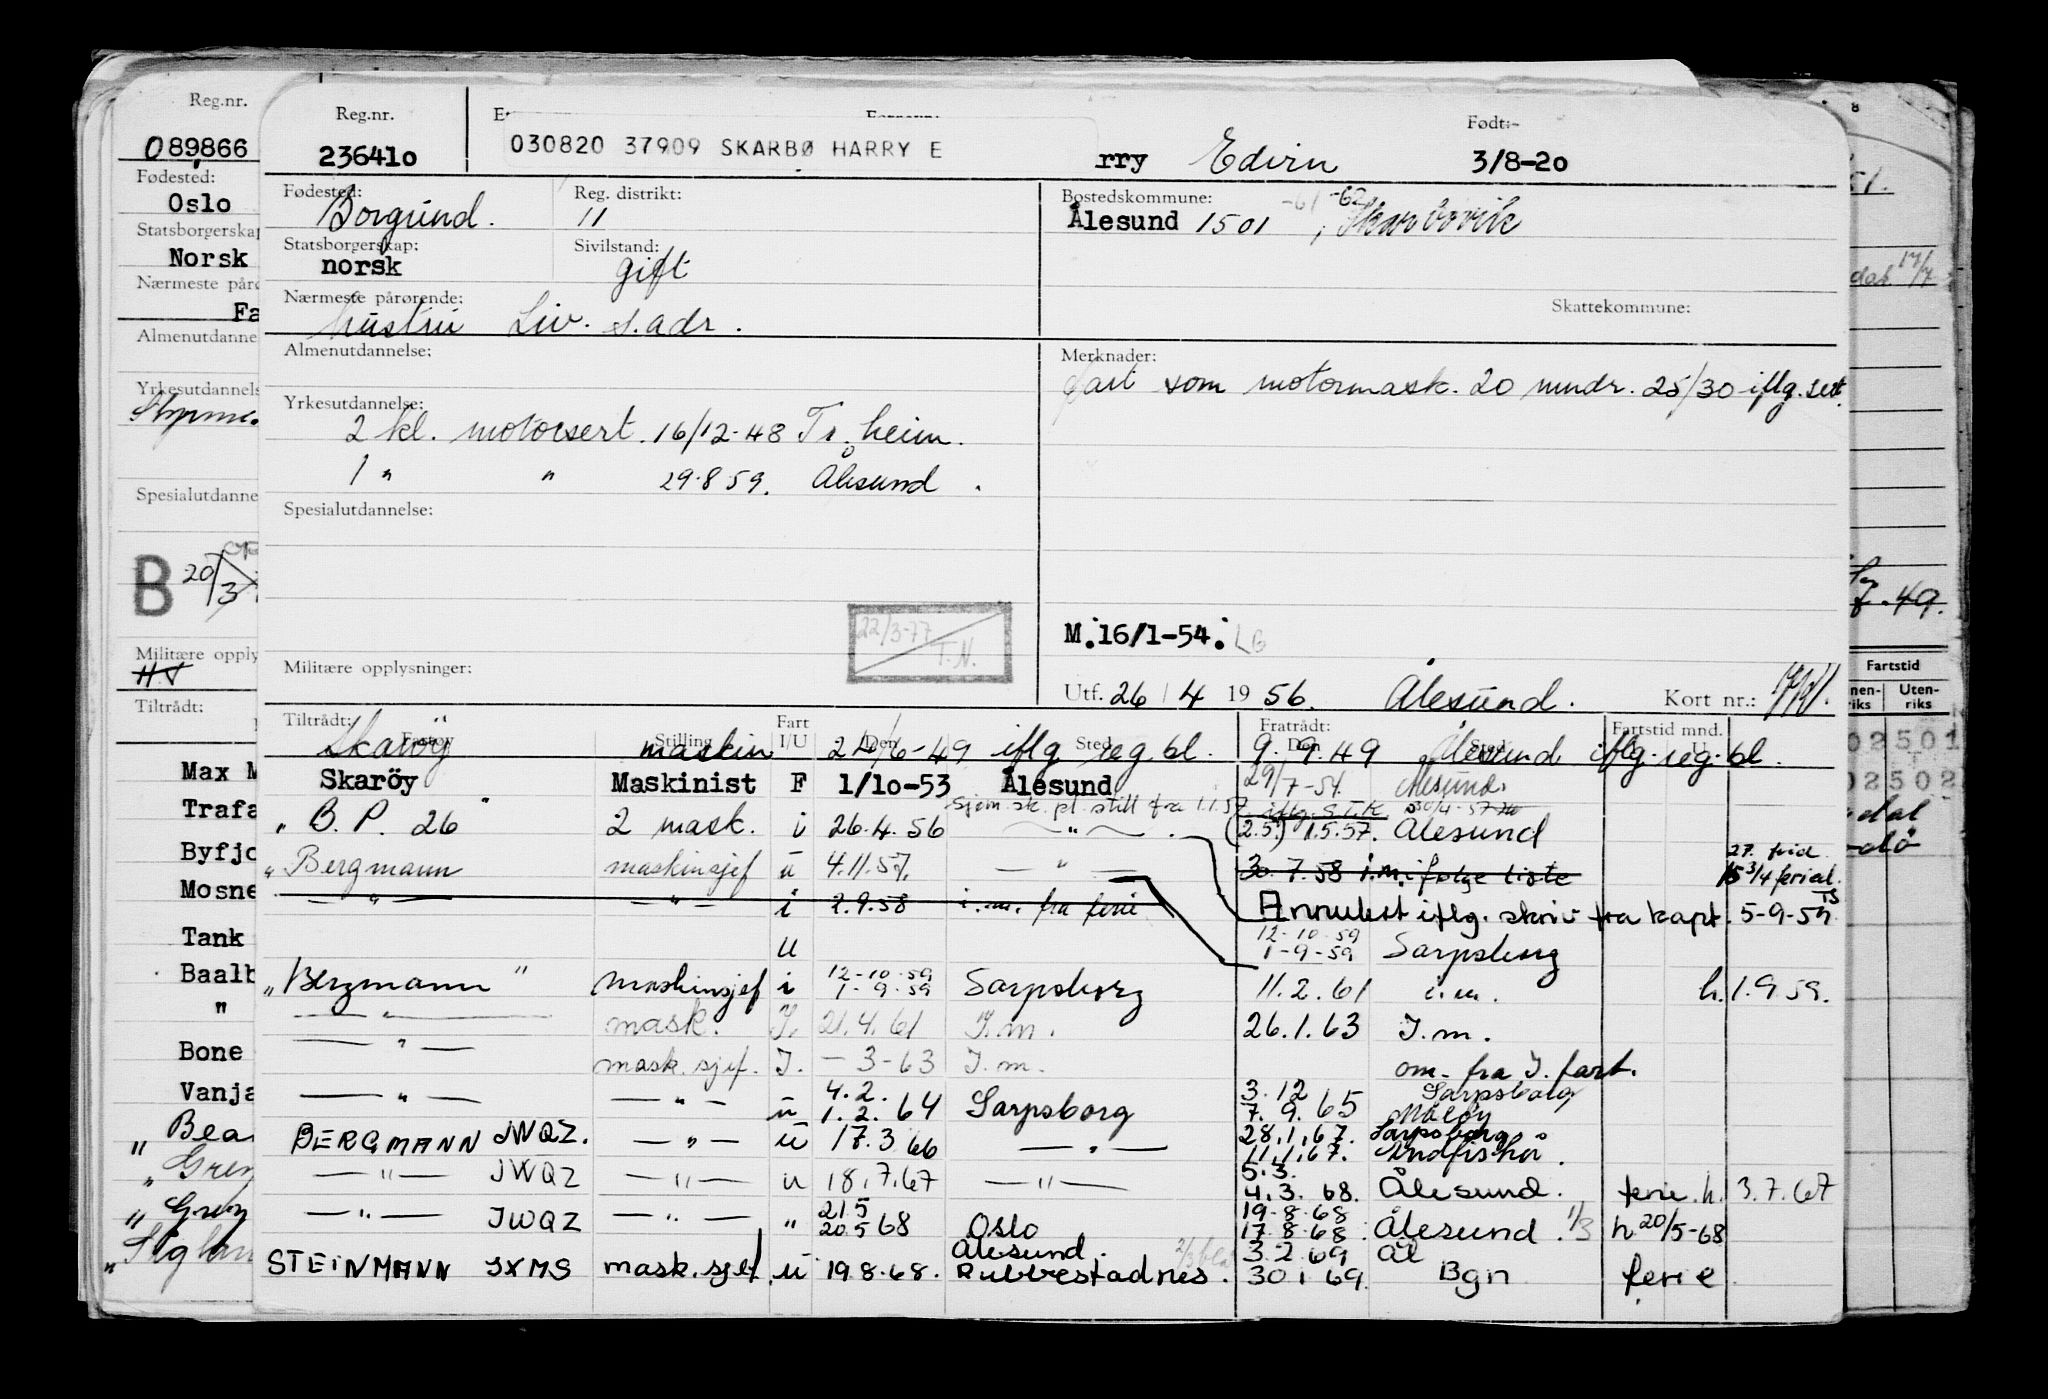 Reg.nr.
089866
Fødested:
Oslo
Statsborgerskap
Norsk
Nærmeste pårø
Fa
Almenutdannel
Yrkesutdannels
Spesialutdanne
B 20/3
Militære opply
Tiltrådt:
Max M
Trafa
Byfjo
Mosne
Tank
Baalb
"
Bone
Vanja
" Bea
" Gren
" Gren
Reg.nr. Født:-
236410 030820 37909 SKARBØ HARRY E rry Edvin 3/8-20
Fødested: Reg. distrikt: Bostedskommune:
Borgund. 11 Ålesund 1501 -61 -62, Skarbøvik
Statsborgerskap: Sivilstand:
norsk gift
Nærmeste pårørende: Skattekommune:
hustru Liv. s.adr.
Almenutdannelse: Merknader:
fart som motormask. 20 mndr. 25/30 iflg. sert.
Yrkesutdannelse:
2 kl. motorsert. 16/12-48 Tr.heim.
1 " " 29.8 59. Ålesund.
Spesialutdannelse:
22/3-77 T.N.
M.16/1-54. LB
Militære opplysninger:
Utf. 26/4 1956. Ålesund. Kort nr.:
Tiltrådt: Fartøy Stilling Fart I/U Den Sted Fratrådt: Den Sted Fartstid mnd. I U
Skaröy maskin 24/6-49 iflg reg bl. 9.9.49 Ålesund iflg. reg. bl.
Skaröy Maskinist F 1/10-53 Ålesund 29/7-54. Ålesund.
Sjøm.sk. pl. still fra 1.1.57 iflg. S.T.K.
" B.P. 26" 2 mask. i 26.4.56 — " — (2.5.) 1.5.57. Ålesund
" Bergmann maskinsjef u 4.11.57. — " — 30.7.58 i.m. ifølge liste
— " — — " — i 2.9.58 i.m. fra ferie Annulert iflg. skriv fra kapt. 5-9-59
u 12-10-59 1-9-59 Sarpsborg
" Bergmann " maskinsjef i 12-10-59 1-9-59 Sarpsborg 11.2.61 i.m. h. 1.9.59.
— " — mask. I. 21.4.61 I.m. 26.1.63 I.m.
— " — mask.sjef. I. — 3-63 I.m. om. fra I. fart.
— " — — " — u 4.2. 1.2. 64 Sarpsborg 3.12 7.9.65 Sarpsborg Måløy
BERGMANN JWQZ. — " — u 17.3 66 — " — 28.1.67. 11.1.67. Sarpsborg
— " — JWQZ — " — u 18.7.67 — " — 5.3. 4.3.68. Ålesund. ferie. h. 3.7.67
— " — JWQZ — " — " 21 5 20 5 68 Oslo 19-8-68 17-8-68 Ålesund. 1/3 h 20/5-68
STEINMANN JXMS mask.sjef u 19.8.68. Ålesund. Rubbestadnes. 3.2.69 30.1.69. Ål Bgn ferie
Fartstid
nen-riks Uten-riks
02501
02502